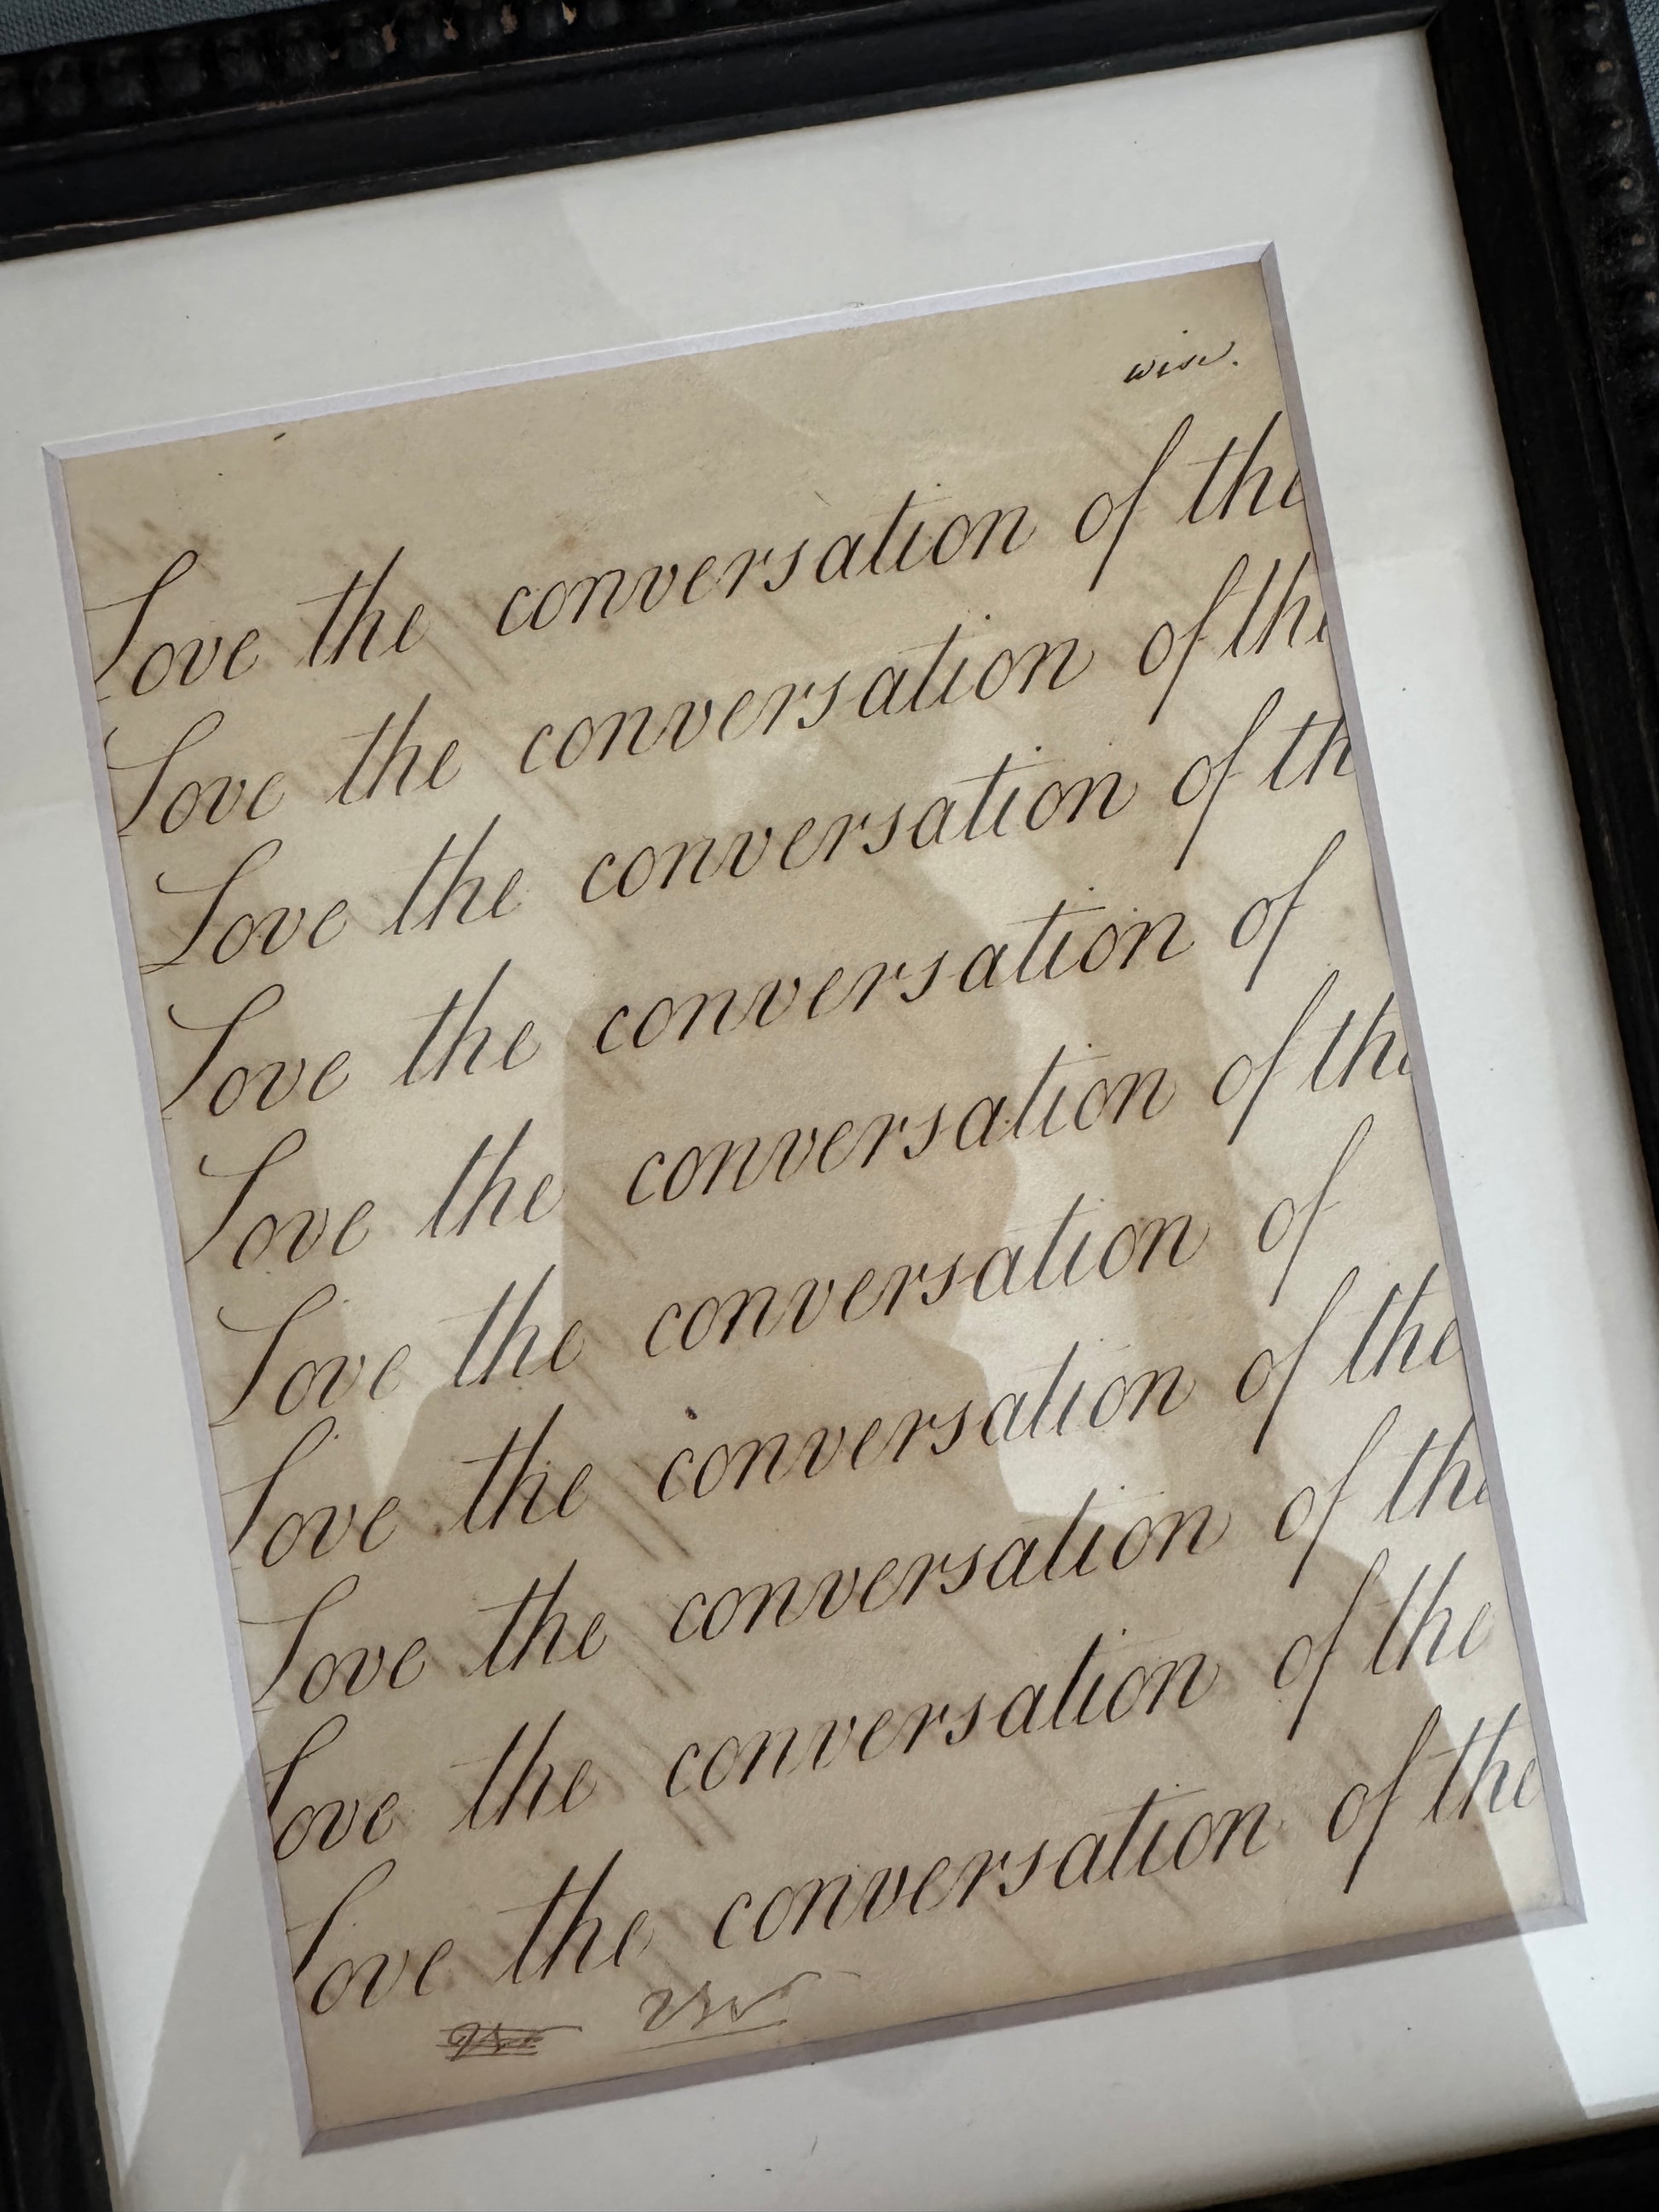 wise.
Love the conversation of the
Love the conversation of the
Love the conversation of th
Love the conversation of
Love the conversation of the
Love the conversation of
Love the conversation of the
Love the conversation of the
Love the conversation of the
Love the conversation of the